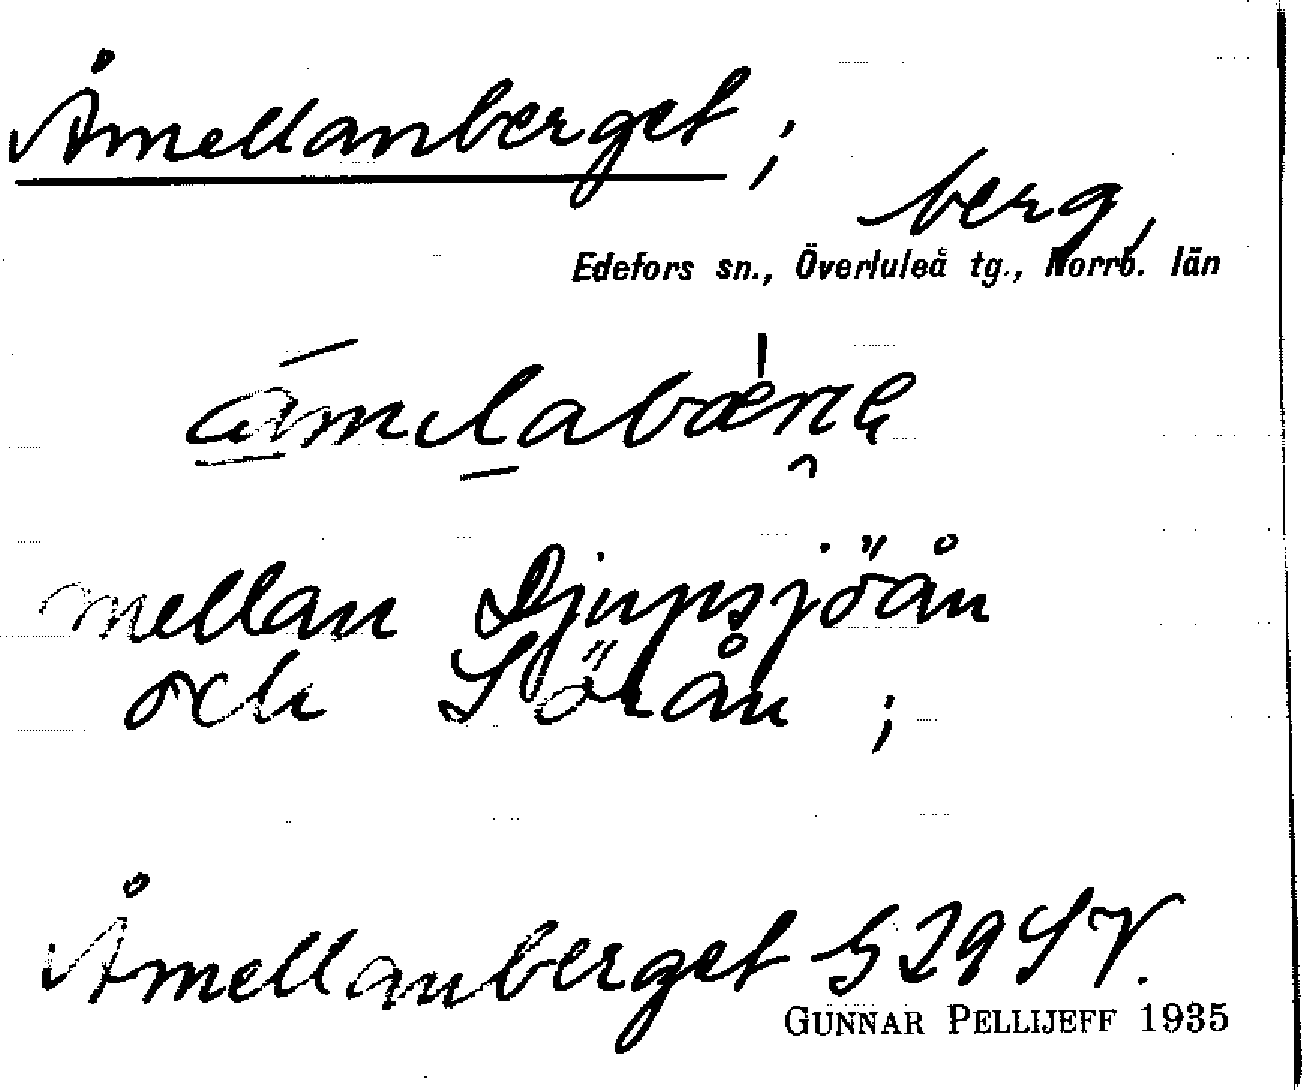 Åmellanberget;
berg,
Edefors sn., Överluleå tg., Norrb. län
mellan Djupsjöån
och Sörån;
Åmellanberget G 29 SV.
GUNNAR PELLIJEFF 1935